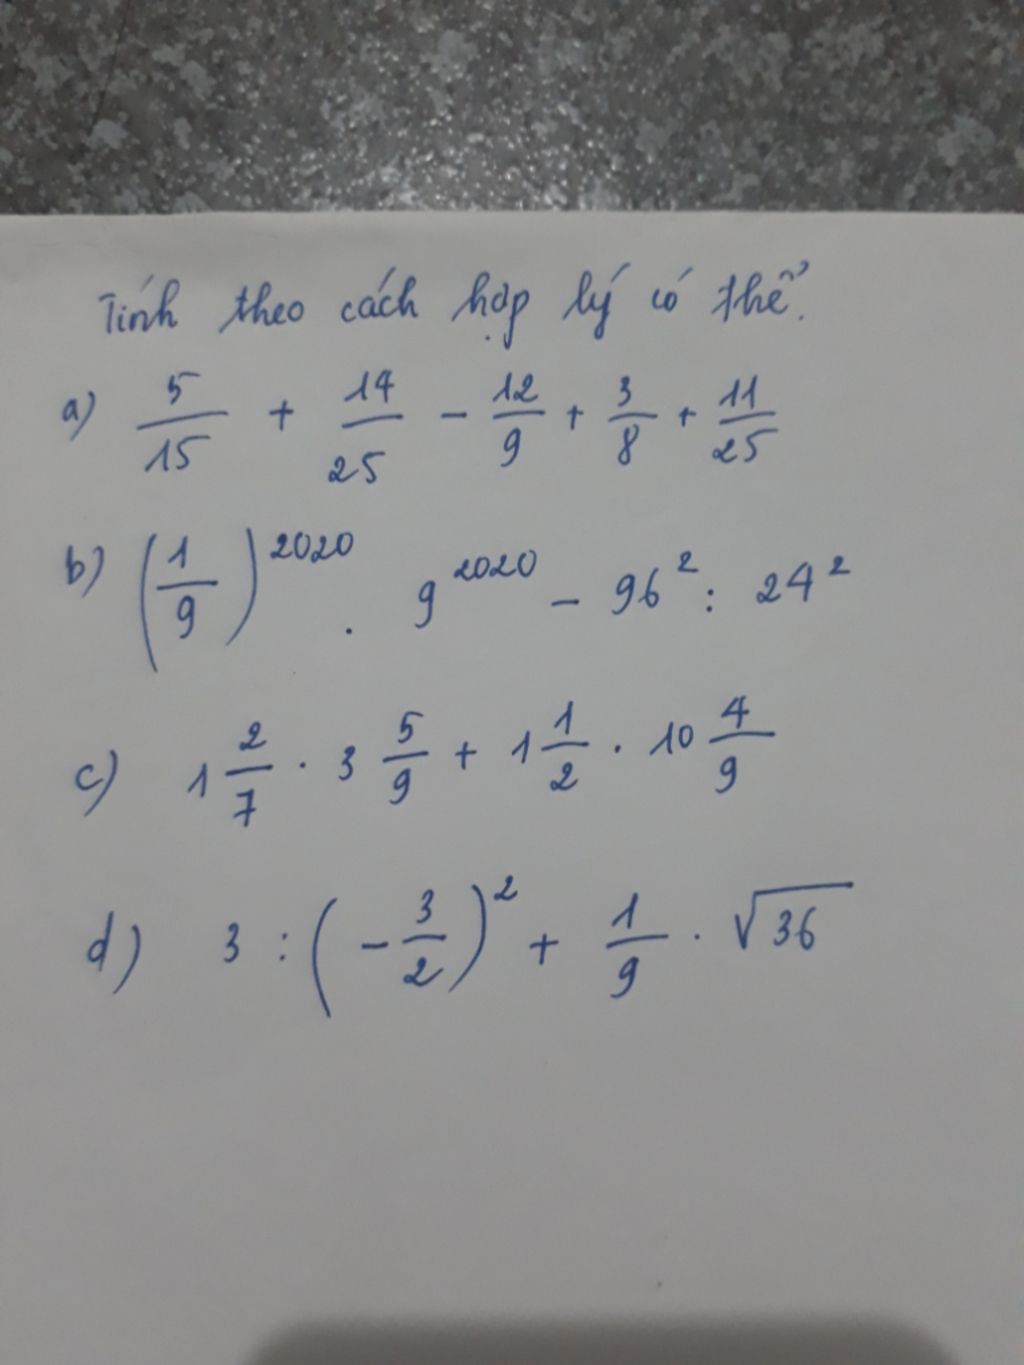 Tính theo cách hợp lý có thể.
a) 5/15 + 14/25 - 12/9 + 3/8 + 11/25
b) (1/9)^2020 . 9^2020 - 96^2 : 24^2
c) 1 2/7 . 3 5/9 + 1 1/2 . 10 4/9
d) 3 : (-3/2)^2 + 1/9 . √36